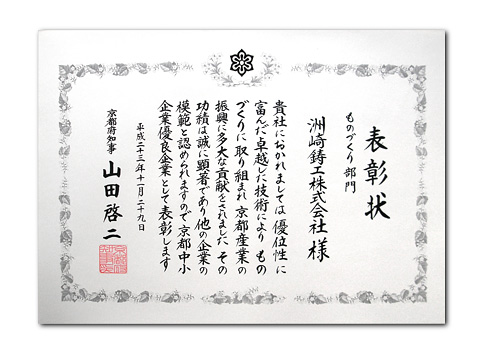 表彰状
ものづくり部門
洲崎鋳工株式会社 様
貴社におかれましては 優位性に
富んだ卓越した技術により もの
づくりに取り組まれ 京都産業の
振興に多大な貢献をされました その
功績は誠に顕著であり他の企業の
模範と認められますので 京都中小
企業優良企業として表彰します
平成二十三年十一月二十九日
京都府知事 山田啓二